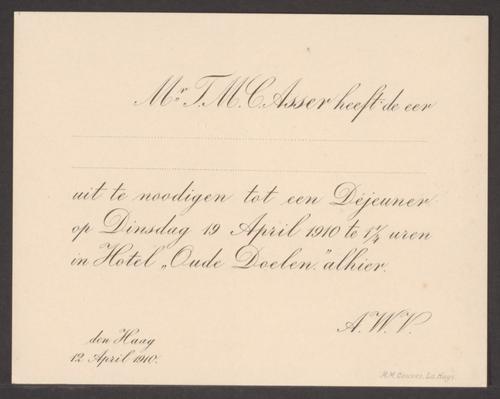 Mr. T.M.C. Asser heeft de eer
uit te noodigen tot een Déjeuner
op Dinsdag 19 April 1910 te uren
in Hotel „Oude Doelen.” alhier.
A.W.V.
den Haag
12 April 1910.
La Haye.